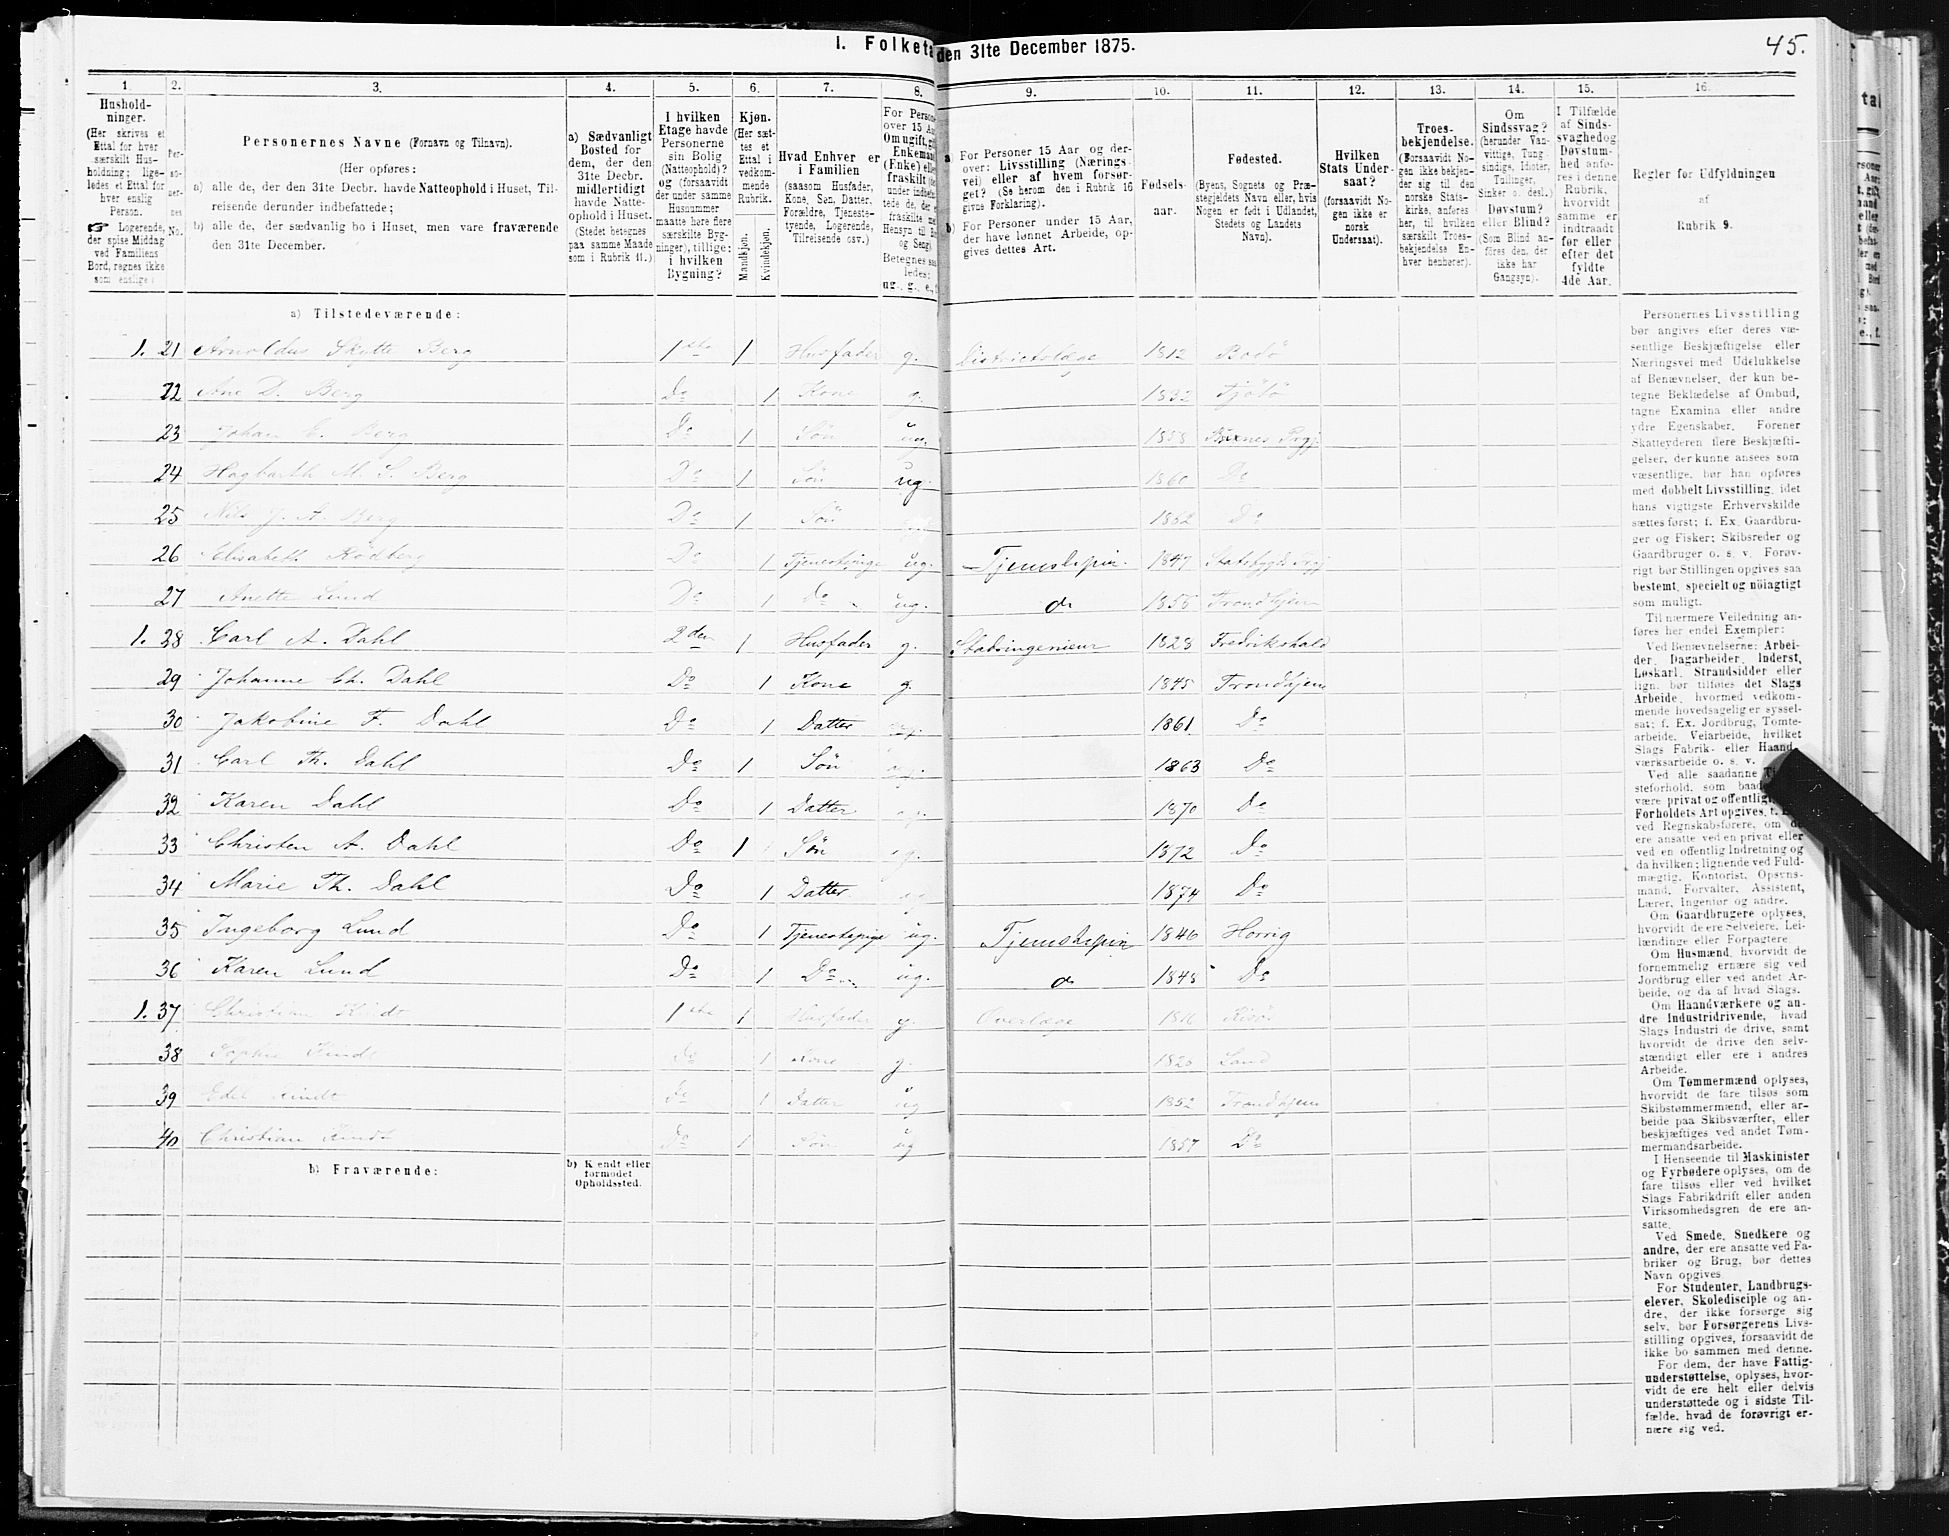 I. Folketæ
den 31te December 1875.
45.
1. 2. 3. 4. 5. 6. 7. 8. 9. 10. 11. 12. 13. 14. 15. 16.
Hushold-
ninger.
(Her skrives et
Ettal for hver
særskilt Hus-
holdning; lige-
ledes et Ettal for
hver enslig
Person.
☞ Logerende,
der spise Middag
ved Familiens
Bord, regnes ikke
som enslige)
Per-
so-
ner-
nes
No.
Personernes Navne (Fornavn og Tilnavn).
(Her opføres:
a) alle de, der den 31te Decbr. havde Natteophold i Huset, Til-
reisende derunder indbefattede;
b) alle de, der sædvanlig bo i Huset, men vare fraværende
den 31te December.
a) Sædvanligt
Bosted for
dem, der den
31te Decbr.
midlertidigt
havde Natte-
ophold i Huset.
(Stedet betegnes
paa samme Maade
som i Rubrik 11.)
I hvilken
Etage havde
Personerne
sin Bolig
(Natteophold)?
og (forsaavidt
under samme
Husnummer
maatte høre flere
særskilte Byg-
ninger), tillige:
i hvilken
Bygning?
Kjøn.
(Her sæt-
tes et
Ettal i
vedkom-
mende
Rubrik.
Mandkjøn.
Kvindekjøn.
Hvad Enhver er
i Familien
(saasom Husfader,
Kone, Søn, Datter,
Forældre, Tjeneste-
tyende, Logerende,
Tilreisende osv.)
For Persone
over 15 Aa
Om ugift, gi
Enkeman
(Enke) elle
fraskilt (de
under indbefat-
tede de, der e
fraskilte me
Hensyn til Bo
og Seng).
Betegnes saa
ledes:
ug., g., e.,
a) For Personer 15 Aar og der-
over: Livsstilling (Nærings-
vei) eller af hvem forsør-
get? (Se herom den i Rubrik 16
givne Forklaring).
b) For Personer under 15 Aar,
der have lønnet Arbeide, op-
gives dettes Art.
Fødsels-
aar.
Fødested.
(Byens, Sognets og Præ-
stegjeldets Navn eller, hvis
Nogen er født i Udlandet,
Stedets og Landets
Navn).
Hvilken
Stats Under-
saat?
(forsaavidt No-
gen ikke er
norsk
Undersaat).
Troes-
bekjendelse.
(Forsaavidt No-
gen ikke bekjen-
der sig til den
norske Stats-
kirke, anføres
her, til hvilken
særskilt Troes-
bekjendelse En-
hver henhører).
Om
Sindssvag?
(herunder Van-
vittige, Tung-
sindige, Idioter,
Tullinger,
Sinker o. desl.).
Døvstum?
eller Blind?
(Som Blind an-
føres den, der
ikke har
Gangsyn).
I Tilfælde
af Sinds-
svaghed og
Døvstum-
hed anfø-
res i denne
Rubrik,
hvorvidt
samme er
indtraadt
før eller
efter det
fyldte
4de Aar.
Regler for Udfyldningen
af
Rubrik 9.
a) Tilstedeværende:
1. 21 Arnoldus Skytte Berg 1ste 1 Husfader g. Districtslæge 1812 Bodø
22 Ane D. Berg Do 1 Kone g. 1832 Tjötö
23 Johan C. Berg Do 1 Søn ug. 1858 Buxnes Prgj.
24 Hagbarth M. S. Berg Do 1 Søn ug. 1860 Do
25 Nils J. A. Berg Do 1 Søn 1862 Do
26 Elisabeth Rödberg Do 1 Tjenestepige ug. Tjenestepin. 1847 Stadsbygds Prgj
27 Anette Lund Do 1 Do ug. do 1855 Trondhjem
1. 28 Carl A. Dahl 2den 1 Husfader g. Stadsingenieur 1828 Fredrikshald
29 Johanne Ch. Dahl Do 1 Kone g. 1845 Trondhjem
30 Jakobine F. Dahl Do 1 Datter ug. 1861 Do
31 Carl Th. Dahl Do 1 Søn ug. 1863 Do
32 Karen Dahl Do 1 Datter ug. 1870 Do
33 Christen A. Dahl Do 1 Søn ug. 1872 Do
34 Marie Th. Dahl Do 1 Datter ug 1874 Do
35 Ingeborg Lund Do 1 Tjenestepige ug. Tjenestepin 1846 Horrig
36 Karen Lund Do 1 Do ug. do 1848 Do
1. 37 Christian Kindt 1ste 1 Husfader g. Overlæge 1816 Risör
38 Sophie Kindt Do 1 Kone g. 1820 Land
39 Edel Kindt Do 1 Datter ug 1852 Trondhjem
40 Christian Kindt Do 1 Søn ug 1857 Do
b) Fraværende:
b) Kjendt eller
formodet
Opholdssted.
Personernes Livsstilling
bør angives efter deres væ-
sentlige Beskjæftigelse eller
Næringsvei med Udelukkelse
af Benævnelser, der kun be-
tegne Beklædelse af Ombud,
tagne Examina eller andre
ydre Egenskaber. Forener
Skatteyderen flere Beskjæfti-
gelser, der kunne ansees som
væsentlige, bør han opføres
med dobbelt Livsstilling, idet
hans vigtigste Erhvervskilde
sættes først; f. Ex. Gaardbru-
ger og Fisker; Skibsreder og
Gaardbruger o. s. v. Forøv-
rigt bør Stillingen opgives saa
bestemt, specielt og nöiagtigt
som muligt.
Til nærmere Veiledning an-
føres her endel Exempler:
Ved Benævnelserne: Arbei-
der, Dagarbeider, Inderst,
Løskarl, Strandsidder eller
lign. bør tilføies det Slags
Arbeide, hvormed vedkom-
mende hovedsagelig er syssel-
sat; f. Ex. Jordbrug, Tomte-
arbeide, Veiarbeide, hvilket
Slags Fabrik- eller Haand-
værksarbeide o. s. v.
Ved alle saadanne
steforhold, som baade
være privat og offentligt,
Forholdets Art opgives, t.
ved Regnskabsførere, om de
ere ansatte ved en privat eller
ved en offentlig Indretning og
da hvilken; lignende ved Fuld-
mægtig, Kontorist, Opsyns-
mand, Forvalter, Assistent,
Lærer, Ingeniør og andre.
Om Gaardbrugere oplyses,
hvorvidt de ere Selveiere, Lei-
lændinge eller Forpagtere.
Om Husmænd, hvorvidt de
fornemmelig ernære sig ved
Jordbrug eller ved andet Ar-
beide, og da af hvad Slags.
Om Haandværkere og an-
dre Industridrivende, hvad
Slags Industri de drive, samt
hvorvidt de drive den selv-
stændigt eller ere i andres
Arbeide.
Om Tømmermænd oplyses,
hvorvidt de fare tilsøs som
Skibstømmermænd, eller ar-
beide paa Skibsværfter, eller
beskjæftiges ved andet Tøm-
mermandsarbeide.
I Henseende til Maskinister
og Fyrbødere oplyses, om de
fare tilsøs eller ved hvilket
Slags Fabrikdrift eller anden
Virksomhedsgren de ere an-
satte.
Ved Smede, Snedkere og
andre, der ere ansatte ved Fa-
briker og Brug, bør dettes
Navn opgives
For Studenter, Landbrugs-
elever, Skoledisciple og an-
dre, der ikke forsørge sig
selv, bør Forsørgerens Livs-
stilling opgives, forsaavidt de
ikke bo sammen med denne.
For dem, der have Fattig-
understøttelse, oplyses, hvor-
vidt de ere helt eller delvis
understøttede og i sidste Til-
fælde, hvad de forøvrigt er-
nære sig ved.